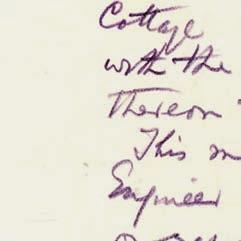 Cottage
with the
thereon
This
Engineer